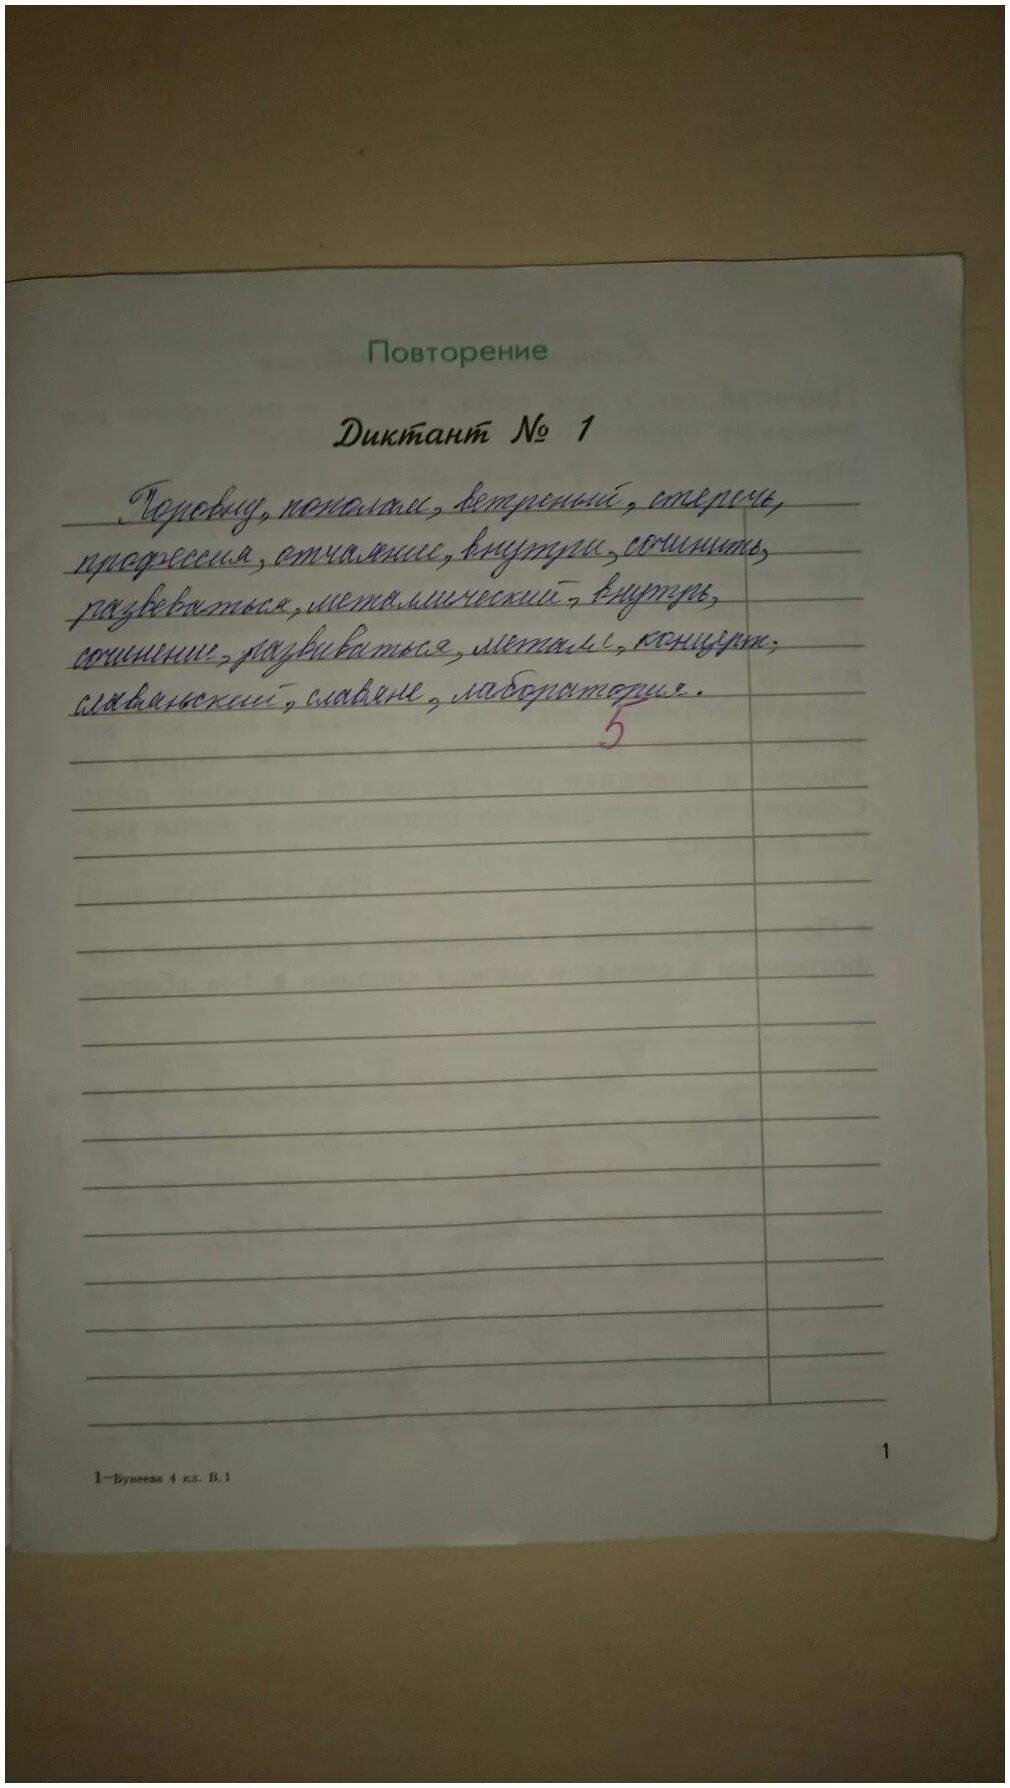 Повторение
Диктант № 1
Поровну, пополам, ветреный, стеречь,
профессия, отчаяние, внутри, сочинить,
развеваться, металлический, внутрь,
сочинение, развиваться, металл, концерт,
славянский, славяне, лаборатория.
5
1
1—Бунеева 4 кл. В.1